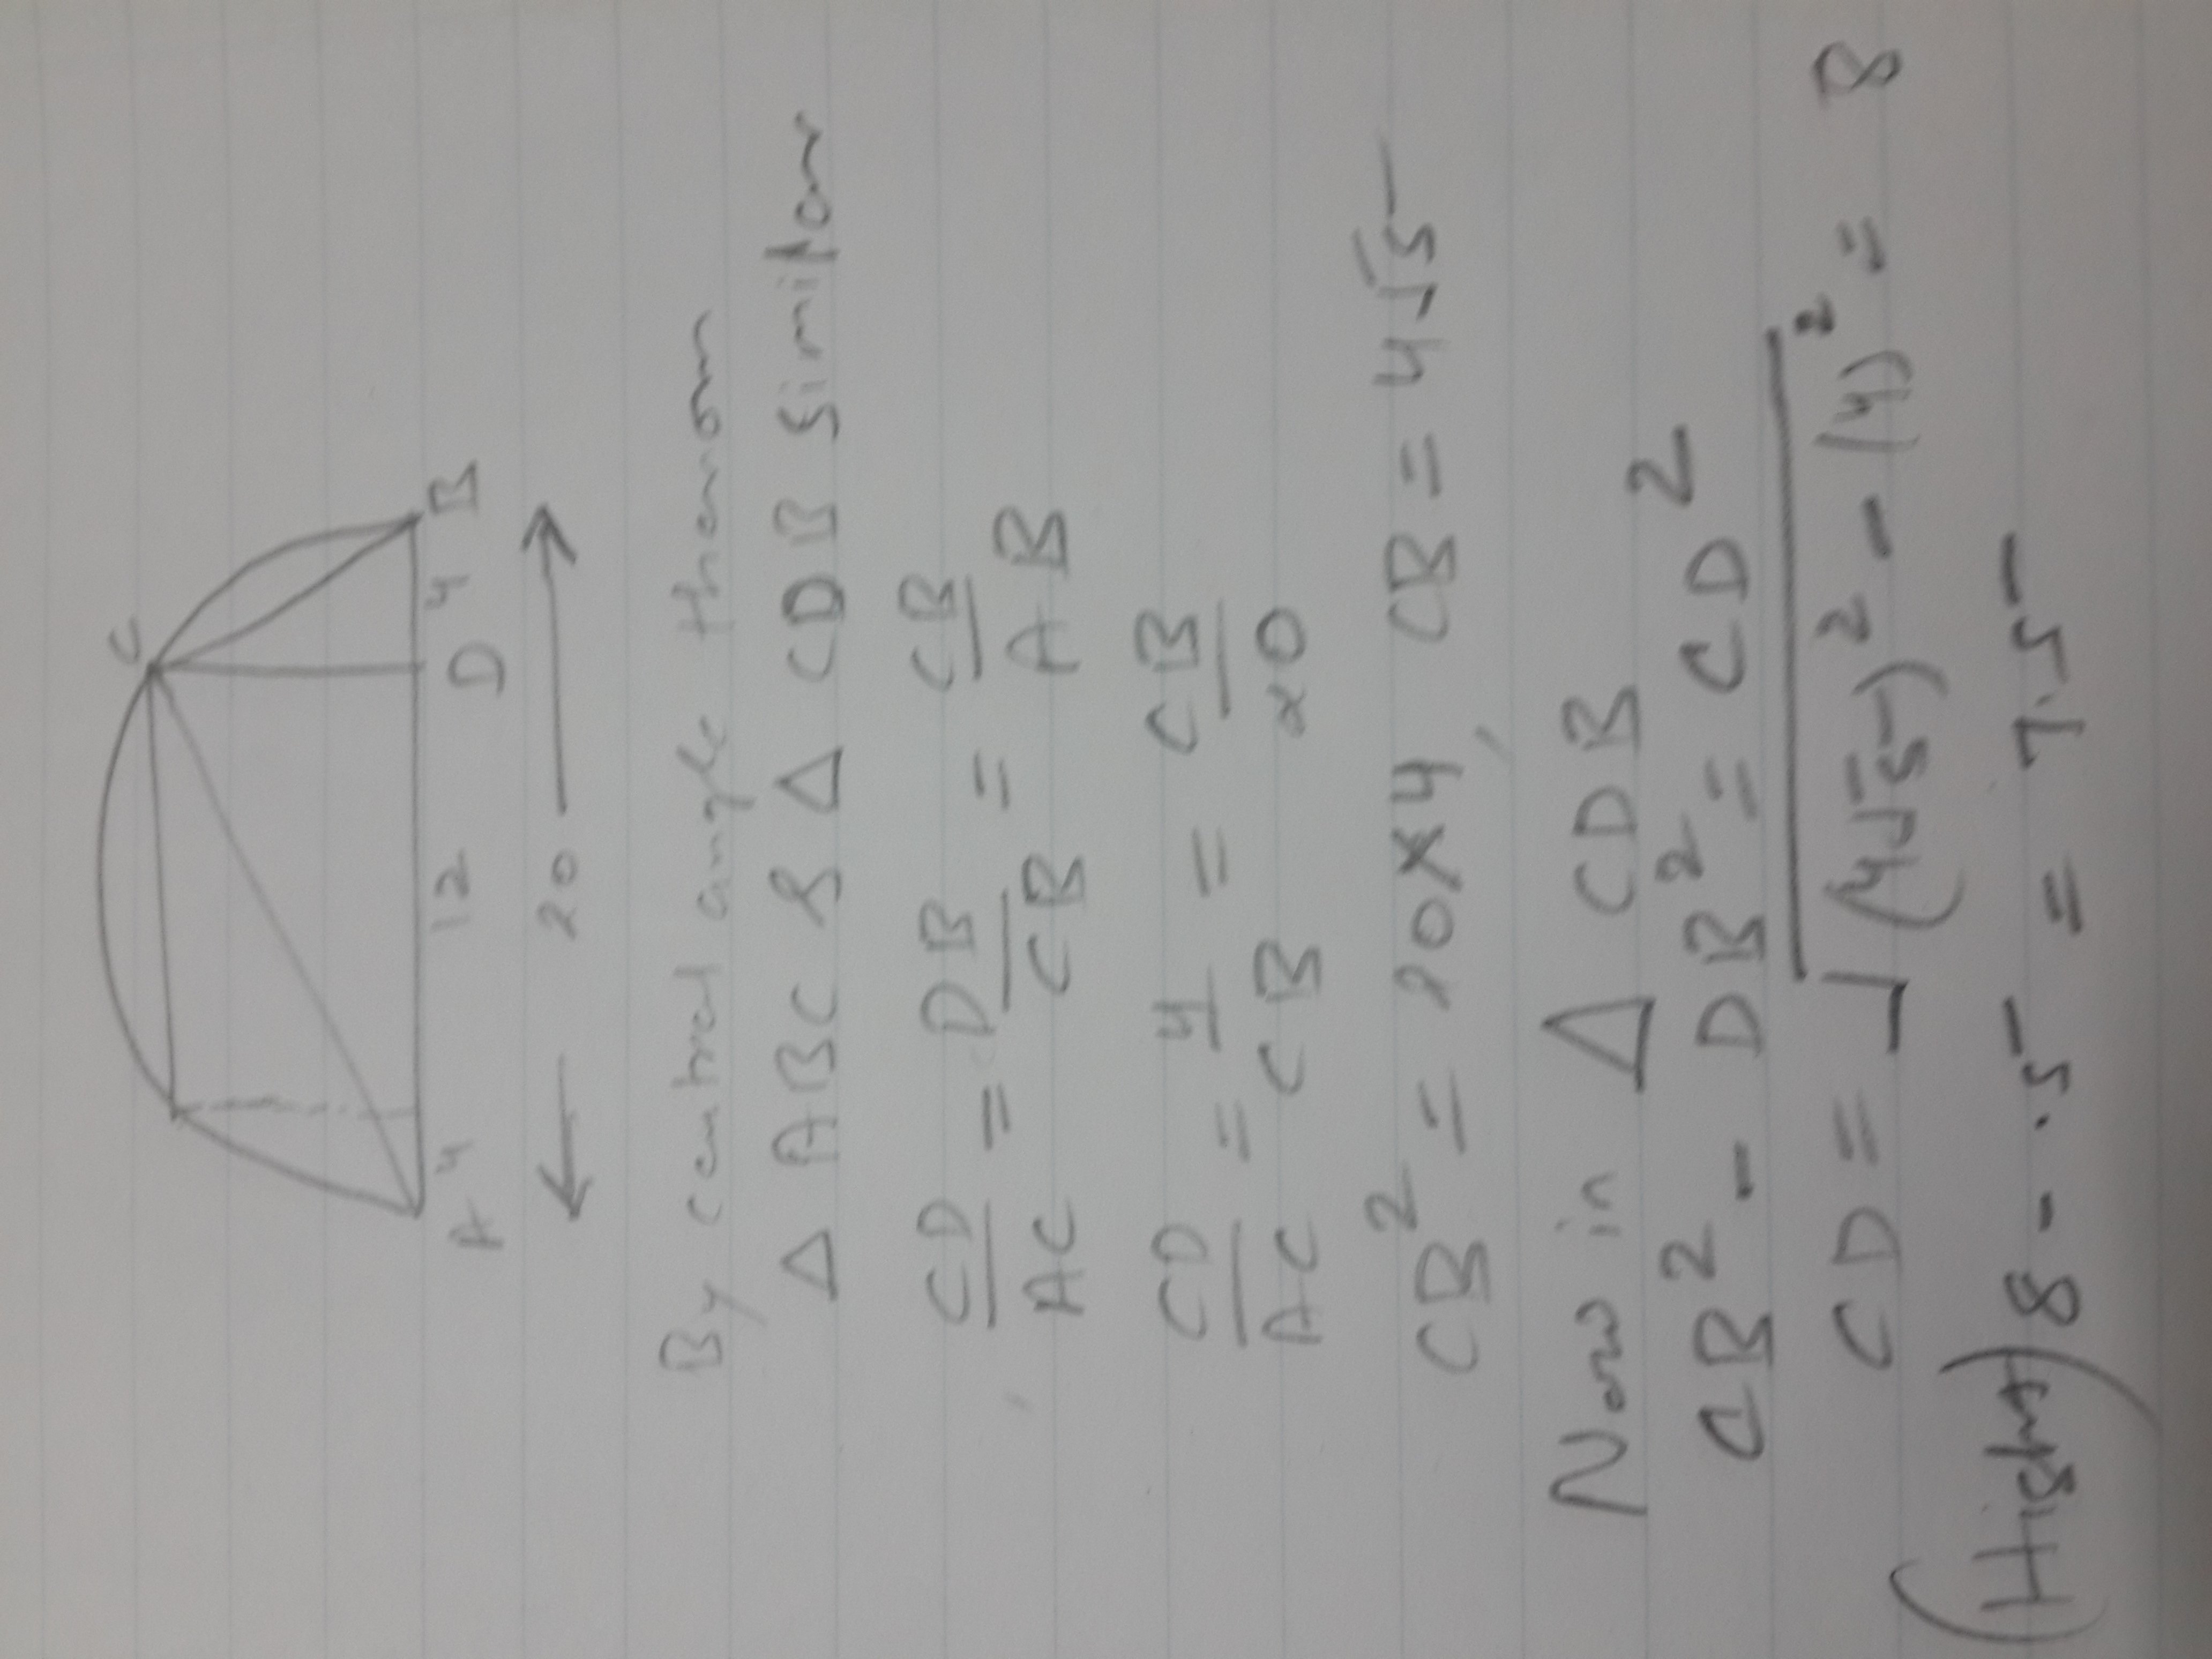 C
A 4 12 D 4 B
20
By central angle theorom
Δ ABC & Δ CDB Similar
CD/AC = DB/CB = CB/AB
CD/AC = 4/CB = CB/20
CB² = 20×4, CB = 4√5
Now in Δ CDB
CB² - DB² = CD²
CD = √(4√5)² - (4)² = 8
(Hight) 8 - .5 = 7.5